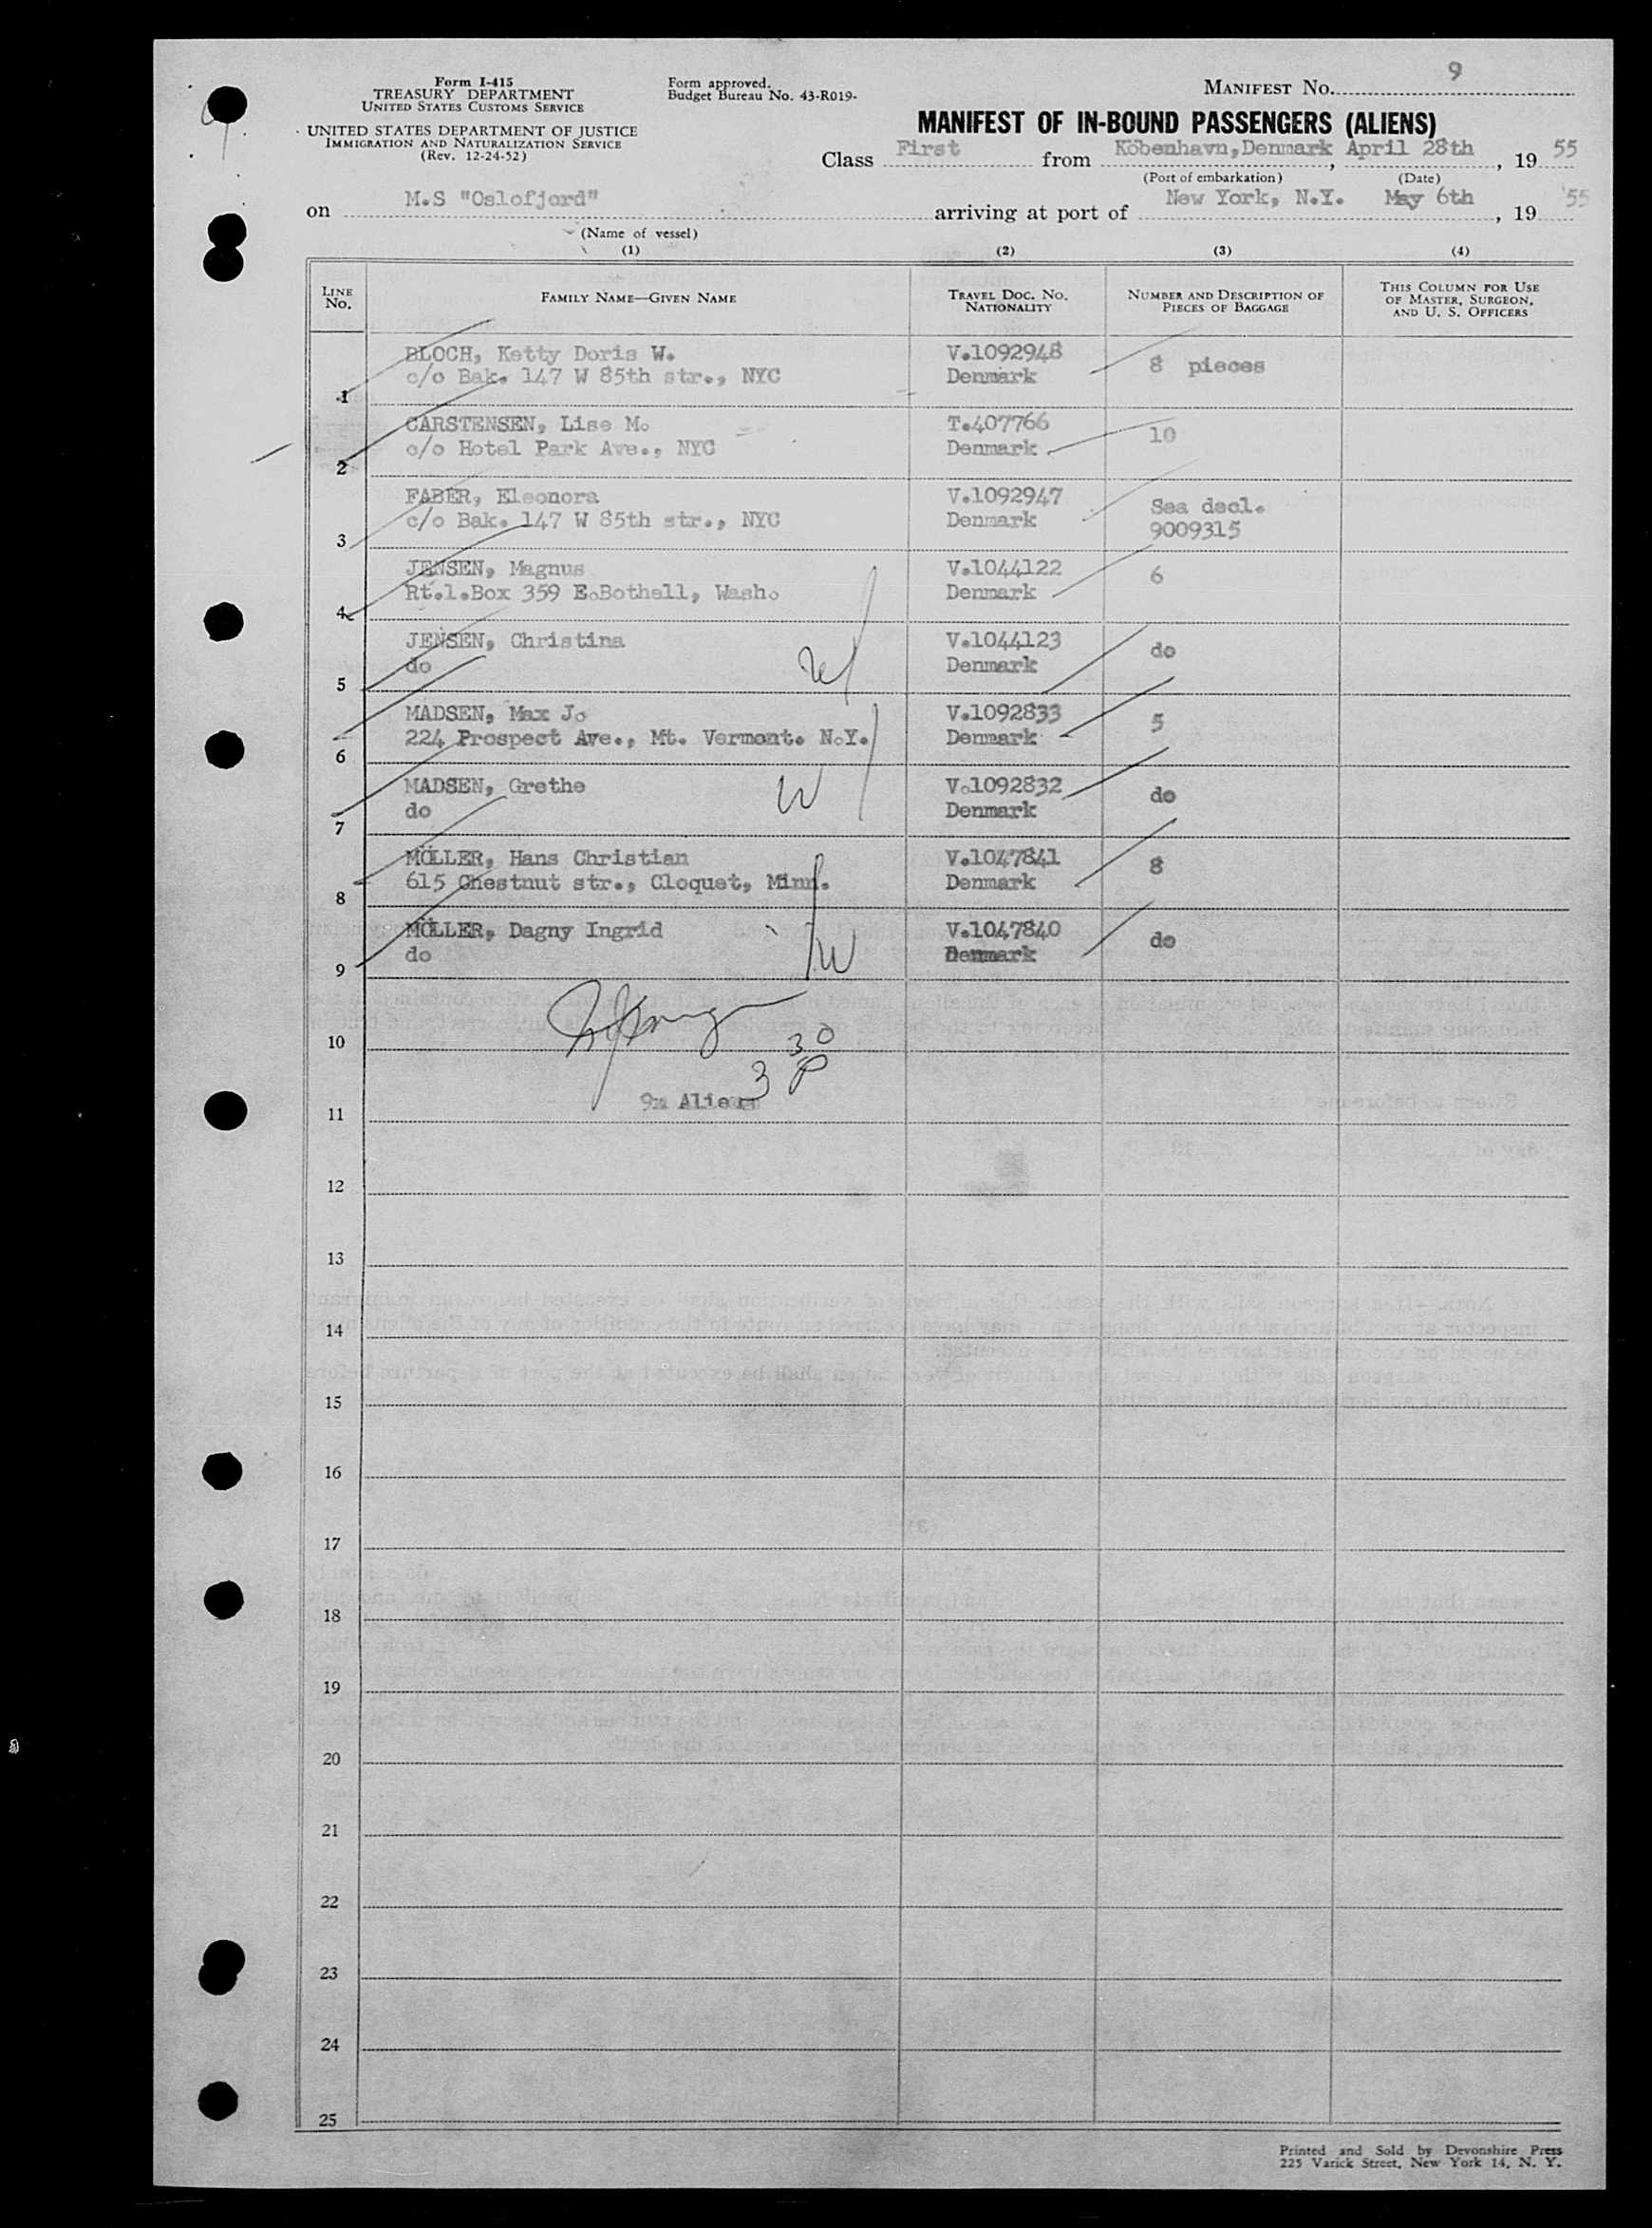 Form I-415
TREASURY DEPARTMENT
UNITED STATES CUSTOMS SERVICE
UNITED STATES DEPARTMENT OF JUSTICE
IMMIGRATION AND NATURALIZATION SERVICE
(Rev. 12-24-52)
Form approved.
Budget Bureau No. 43-R019-
MANIFEST NO. 9
MANIFEST OF IN-BOUND PASSENGERS (ALIENS)
Class First from Köbenhavn, Denmark April 28th, 19 55
(Port of embarkation) (Date)
on M.S "Oslofjord" arriving at port of New York, N.Y. May 6th, 19 '55
(Name of vessel)
(1) (2) (3) (4)
LINE No. FAMILY NAME—GIVEN NAME TRAVEL DOC. NO. NATIONALITY NUMBER AND DESCRIPTION OF PIECES OF BAGGAGE THIS COLUMN FOR USE OF MASTER, SURGEON, AND U. S. OFFICERS
BLOCH, Ketty Doris W. V.1092948 8 pieces
1 c/o Bak. 147 W 85th str., NYC Denmark
CARSTENSEN, Lise M. T.407766 10
2 c/o Hotel Park Ave., NYC Denmark
FABER, Eleonora V.1092947 Sea decl.
3 c/o Bak. 147 W 85th str., NYC Denmark 9009315
JENSEN, Magnus V.1044122 6
4 Rt.1.Box 359 E.Bothell, Wash. Denmark
JENSEN, Christina V.1044123 do
5 do Denmark
MADSEN, Max J. V.1092833 5
6 224 Prospect Ave., Mt. Vermont. N.Y. Denmark
MADSEN, Grethe V.1092832 do
7 do W Denmark
MÖLLER, Hans Christian V.1047841 8
8 615 Chestnut str., Cloquet, Minn. Denmark
MÖLLER, Dagny Ingrid V.1047840 do
9 do W Denmark
10
3 30 P
9 Aliens
11
12
13
14
15
16
17
18
19
20
21
22
23
24
25
Printed and Sold by Devonshire Press
225 Varick Street, New York 14, N. Y.